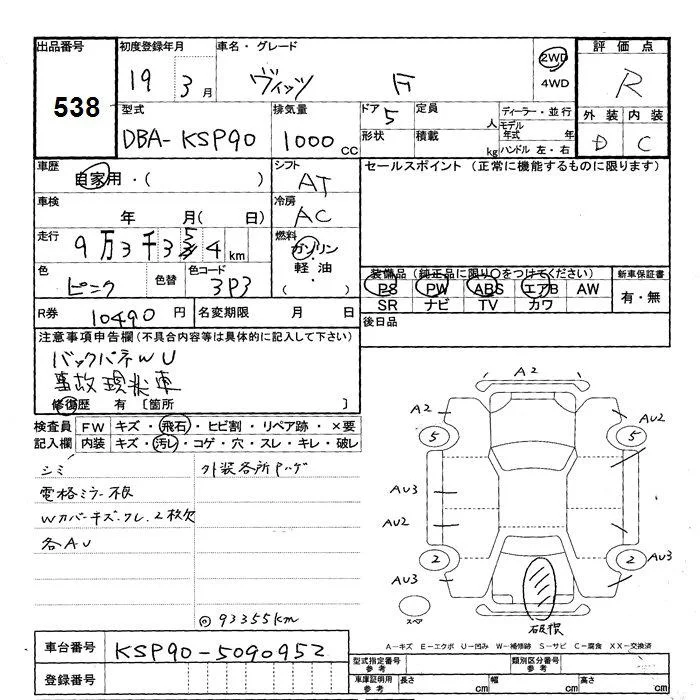 出品番号 初度登録年月 車名・グレード 2WD 評価点
538 19 3月 ヴィッツ F 4WD R
型式 排気量 ドア 定員 ディーラー・並行 外装 内装
DBA-KSP90 1000cc 5 人 モデル年式 年 D C
形状 積載 kg ハンドル 左・右
車歴 シフト セールスポイント (正常に機能するものに限ります)
自家用・( ) AT
車検 冷房
年 月( 日) AC
走行 燃料
9万3千354km ガソリン・軽油・( )
色 色替 色コード 装備品 (純正品に限り○をつけてください) 新車保証書
ピンク 3P3 PS PW ABS エアB AW 有・無
SR ナビ TV カワ
R券 10490円 名変期限 月 日 後日品
注意事項申告欄(不具合内容等は具体的に記入して下さい)
バックパネWU
事故現状車
修復歴 有 [箇所 ]
検査員 FW キズ・飛石・ヒビ割・リペア跡・×要
記入欄 内装 キズ・汚レ・コゲ・穴・スレ・キレ・破レ
シミ 外装各所
電格ミラー不良
Wカバーキズ.ワレ.2枚欠
各AU
◎93355km
A2
A2 AU2
5 5
AU3
AU2
2 2 AU3
AU3
スペア 破損
A-キズ E-エクボ U-凹み W-補修跡 S-サビ C-腐食 XX-交換済
車台番号 KSP90-5090952
登録番号
型式指定番号 参考 類別区分番号 参考
車庫証明用 参考 長さ cm 幅 cm 高さ cm